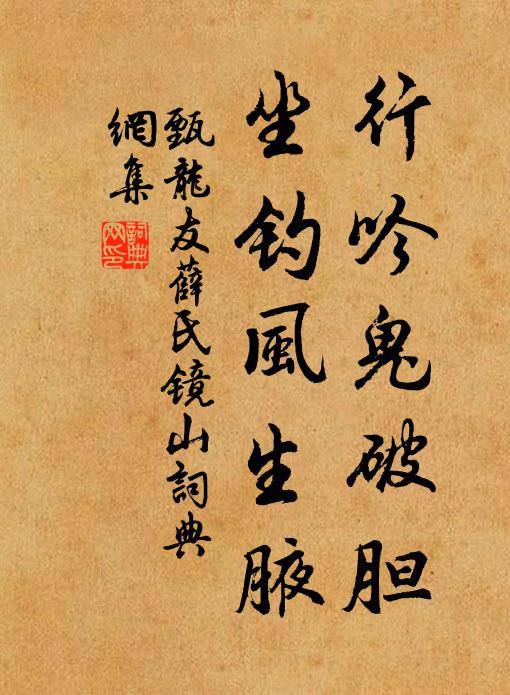 行吟鬼破胆
坐钓風生腋
甄龍友薛氏镜山詞典
網集
詞典
网印